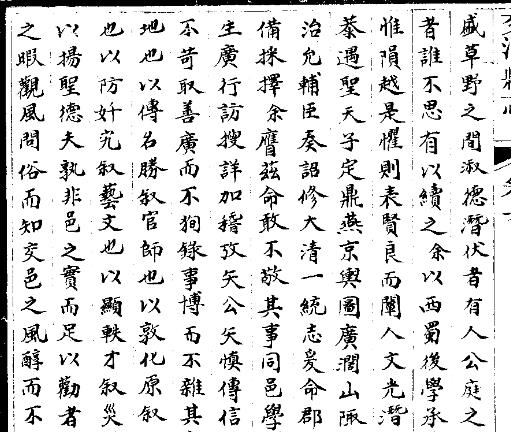 盛草野之間淑德潛伏者有人公庭之
昔誰不思有以續之余以西蜀後學承
惟隕越是懼則表賢良而闡人文光潛
蓁遇聖天子定鼎燕京輿圖廣濶山陬
治允輔臣奏詔修大清一統志爰命郡
備採擇余膺茲命敢不敬其事同邑學
生廣行訪搜詳加稽攷矢公矢慎傳信
不苛取善廣而不狥錄事博而不雜其
地也以傳名勝叙官師也以敦化原叙
也以防奸宄叙藝文也以顯軼才叙災
以揚聖德夫孰非邑之實而足以勸者
之暇觀風問俗而知交邑之風醇而不